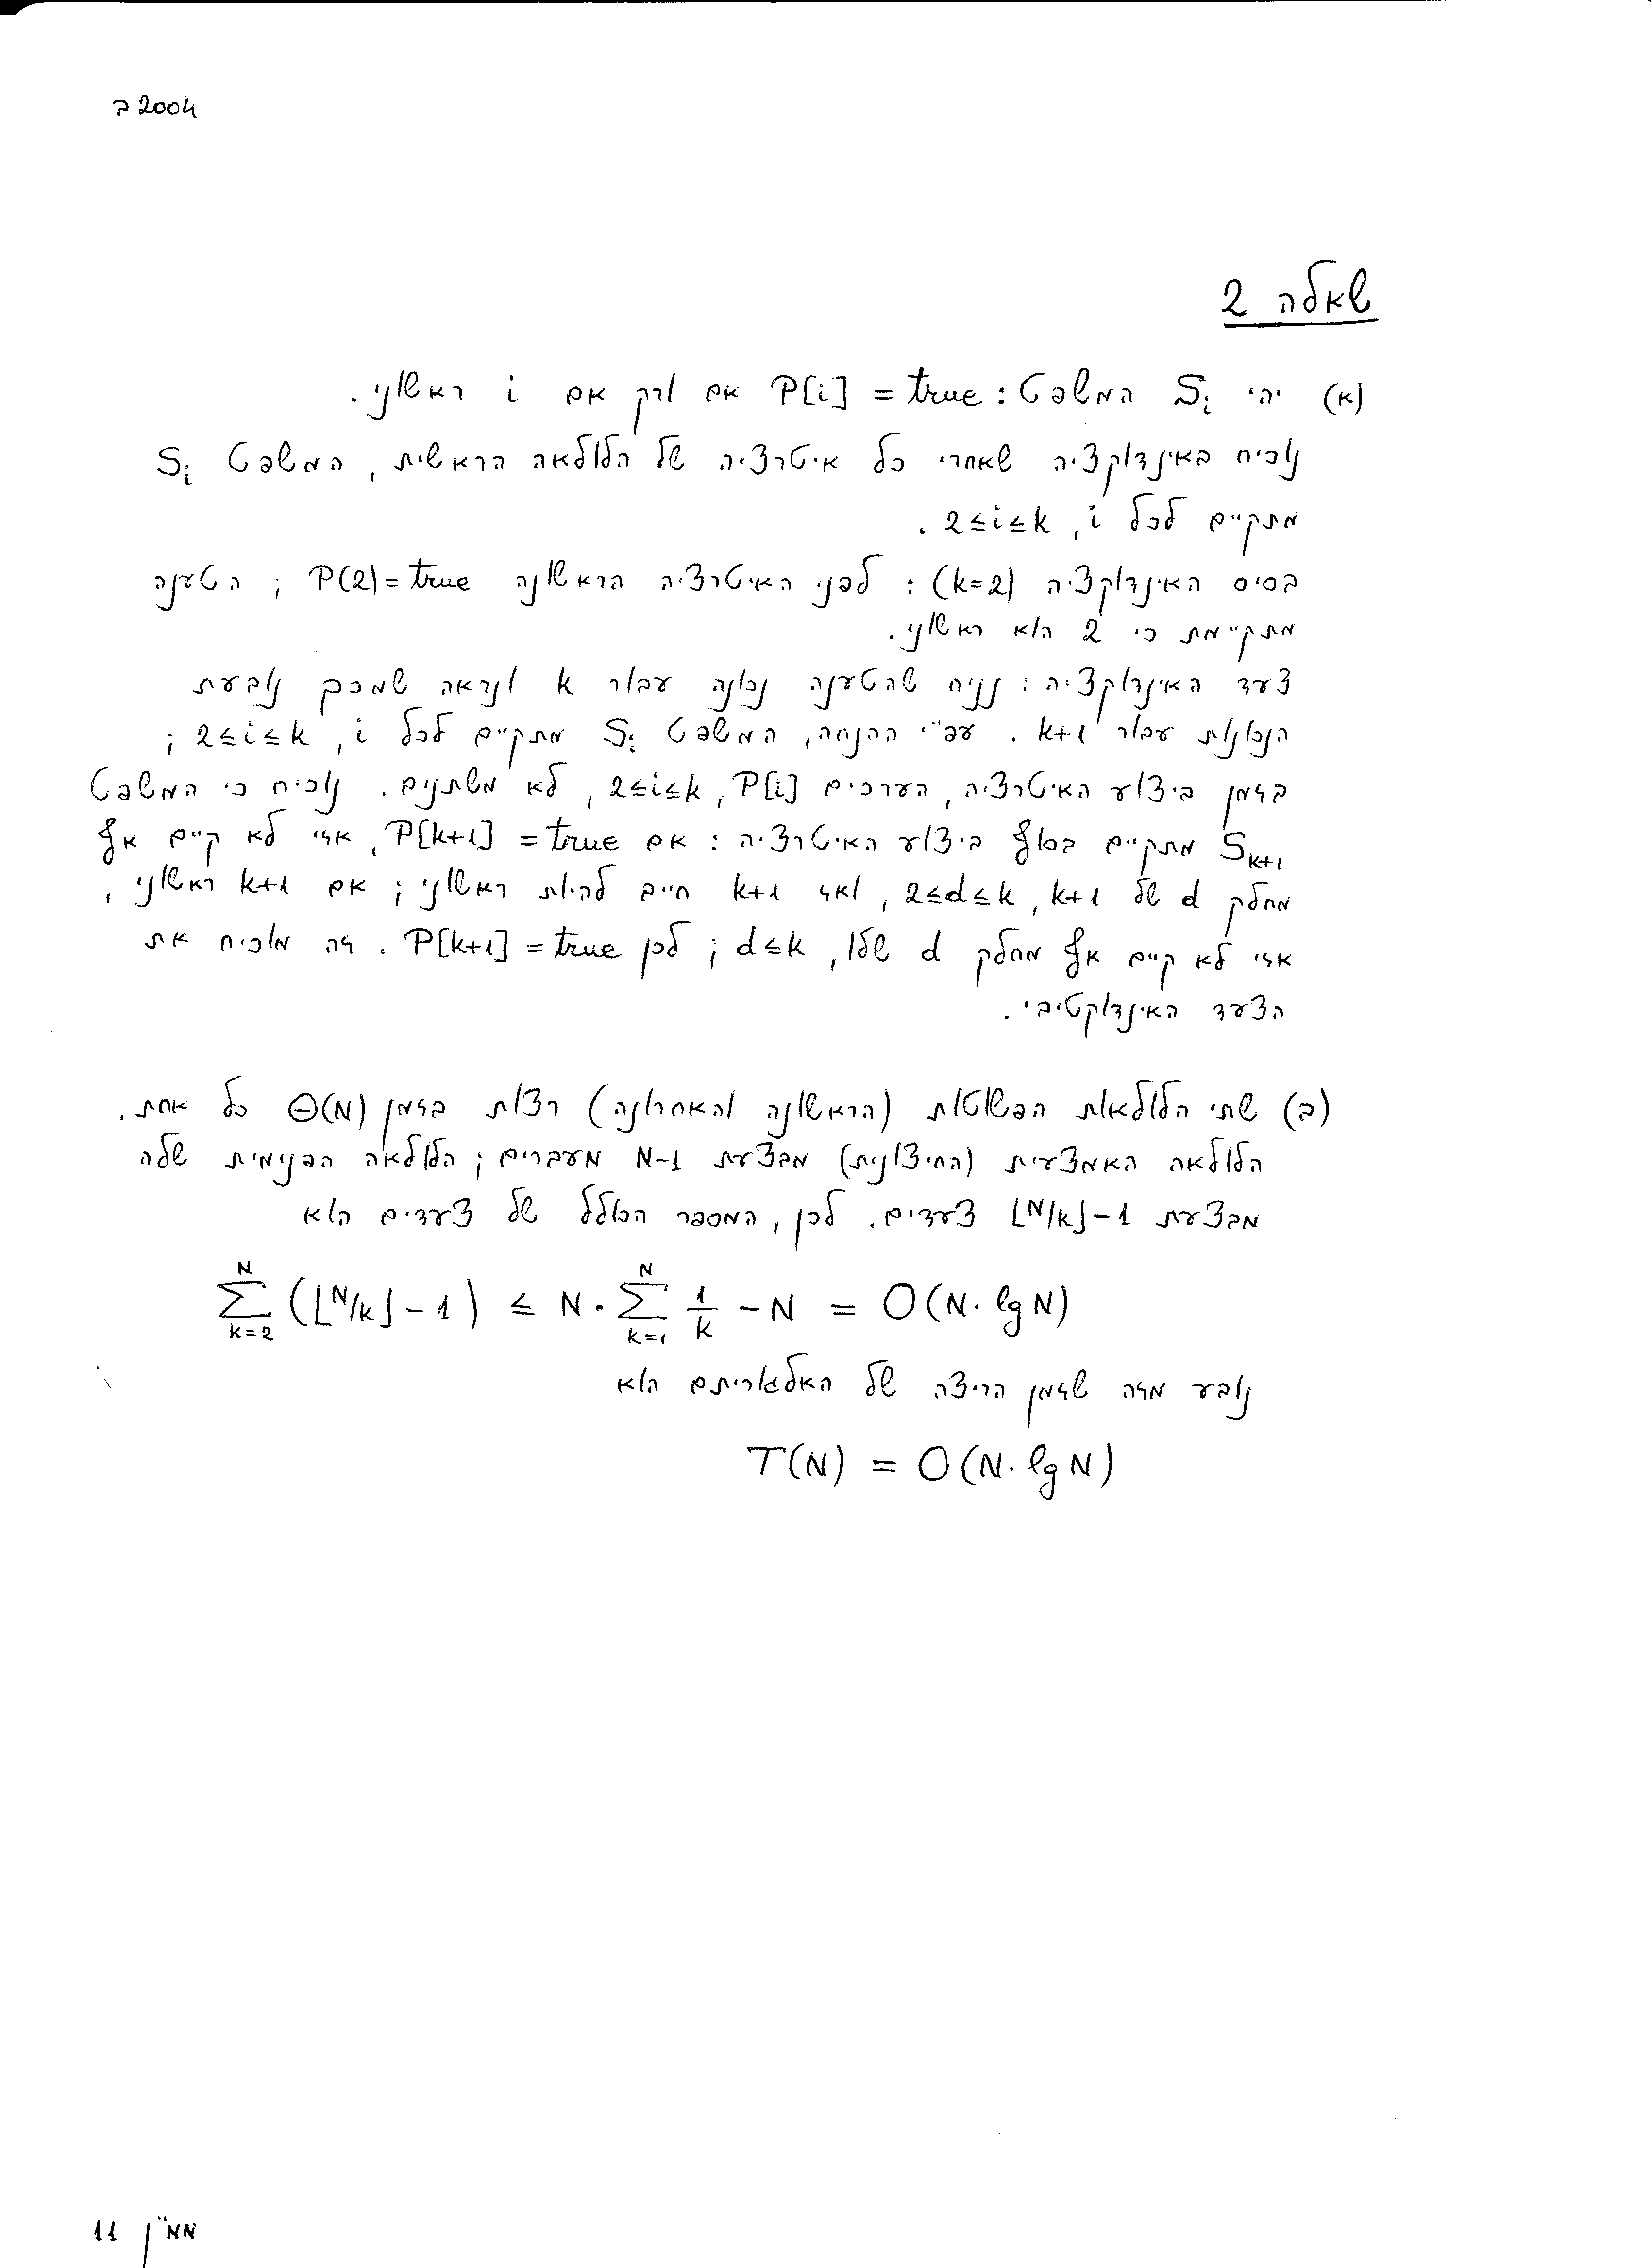 2004 ב
שאלה 2
(א) יהי Sᵢ המשפט: P[i] = true אם ורק אם i ראשוני.
נוכיח באינדוקציה שאחרי כל איטרציה של הלולאה הראשית, המשפט Sᵢ
מתקיים לכל i, 2≤i≤k.
בסיס האינדוקציה (k=2): לפני האיטרציה הראשונה P(2)=true; הטענה
מתקיימת כי 2 הוא ראשוני.
צעד האינדוקציה: נניח שהטענה נכונה עבור k ונראה שמכך נובעת
הנכונות עבור k+1. עפ"י ההנחה, המשפט Sᵢ מתקיים לכל i, 2≤i≤k;
בזמן ביצוע האיטרציה, הערכים P[i], 2≤i≤k, לא משתנים. נוכיח כי המשפט
Sₖ₊₁ מתקיים בסוף ביצוע האיטרציה: אם P[k+1] = true, אזי לא קיים אף
מחלק d של k+1, 2≤d≤k, ואז k+1 חייב להיות ראשוני; אם k+1 ראשוני,
אזי לא קיים אף מחלק d שלו, d≤k; לכן P[k+1] = true. זה מוכיח את
הצעד האינדוקטיבי.
(ב) שתי הלולאות הפשוטות (הראשונה והאחרונה) רצות בזמן Θ(N) כל אחת.
הלולאה האמצעית (החיצונית) מבצעת N-1 מעברים; הלולאה הפנימית שלה
מבצעת ⌊N/k⌋-1 צעדים. לכן, המספר הכולל של צעדים הוא
∑_{k=2}^{N} (⌊N/k⌋ - 1) ≤ N · ∑_{k=1}^{N} 1/k - N = O(N · lg N)
נובע מזה שזמן הריצה של האלגוריתם הוא
T(N) = O(N · lg N)
ממ"ן 11